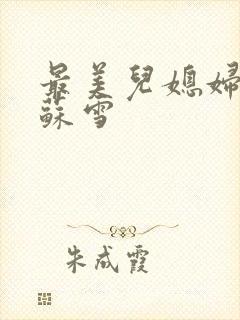 最美兒媳婦
蘇雪
朱成霞